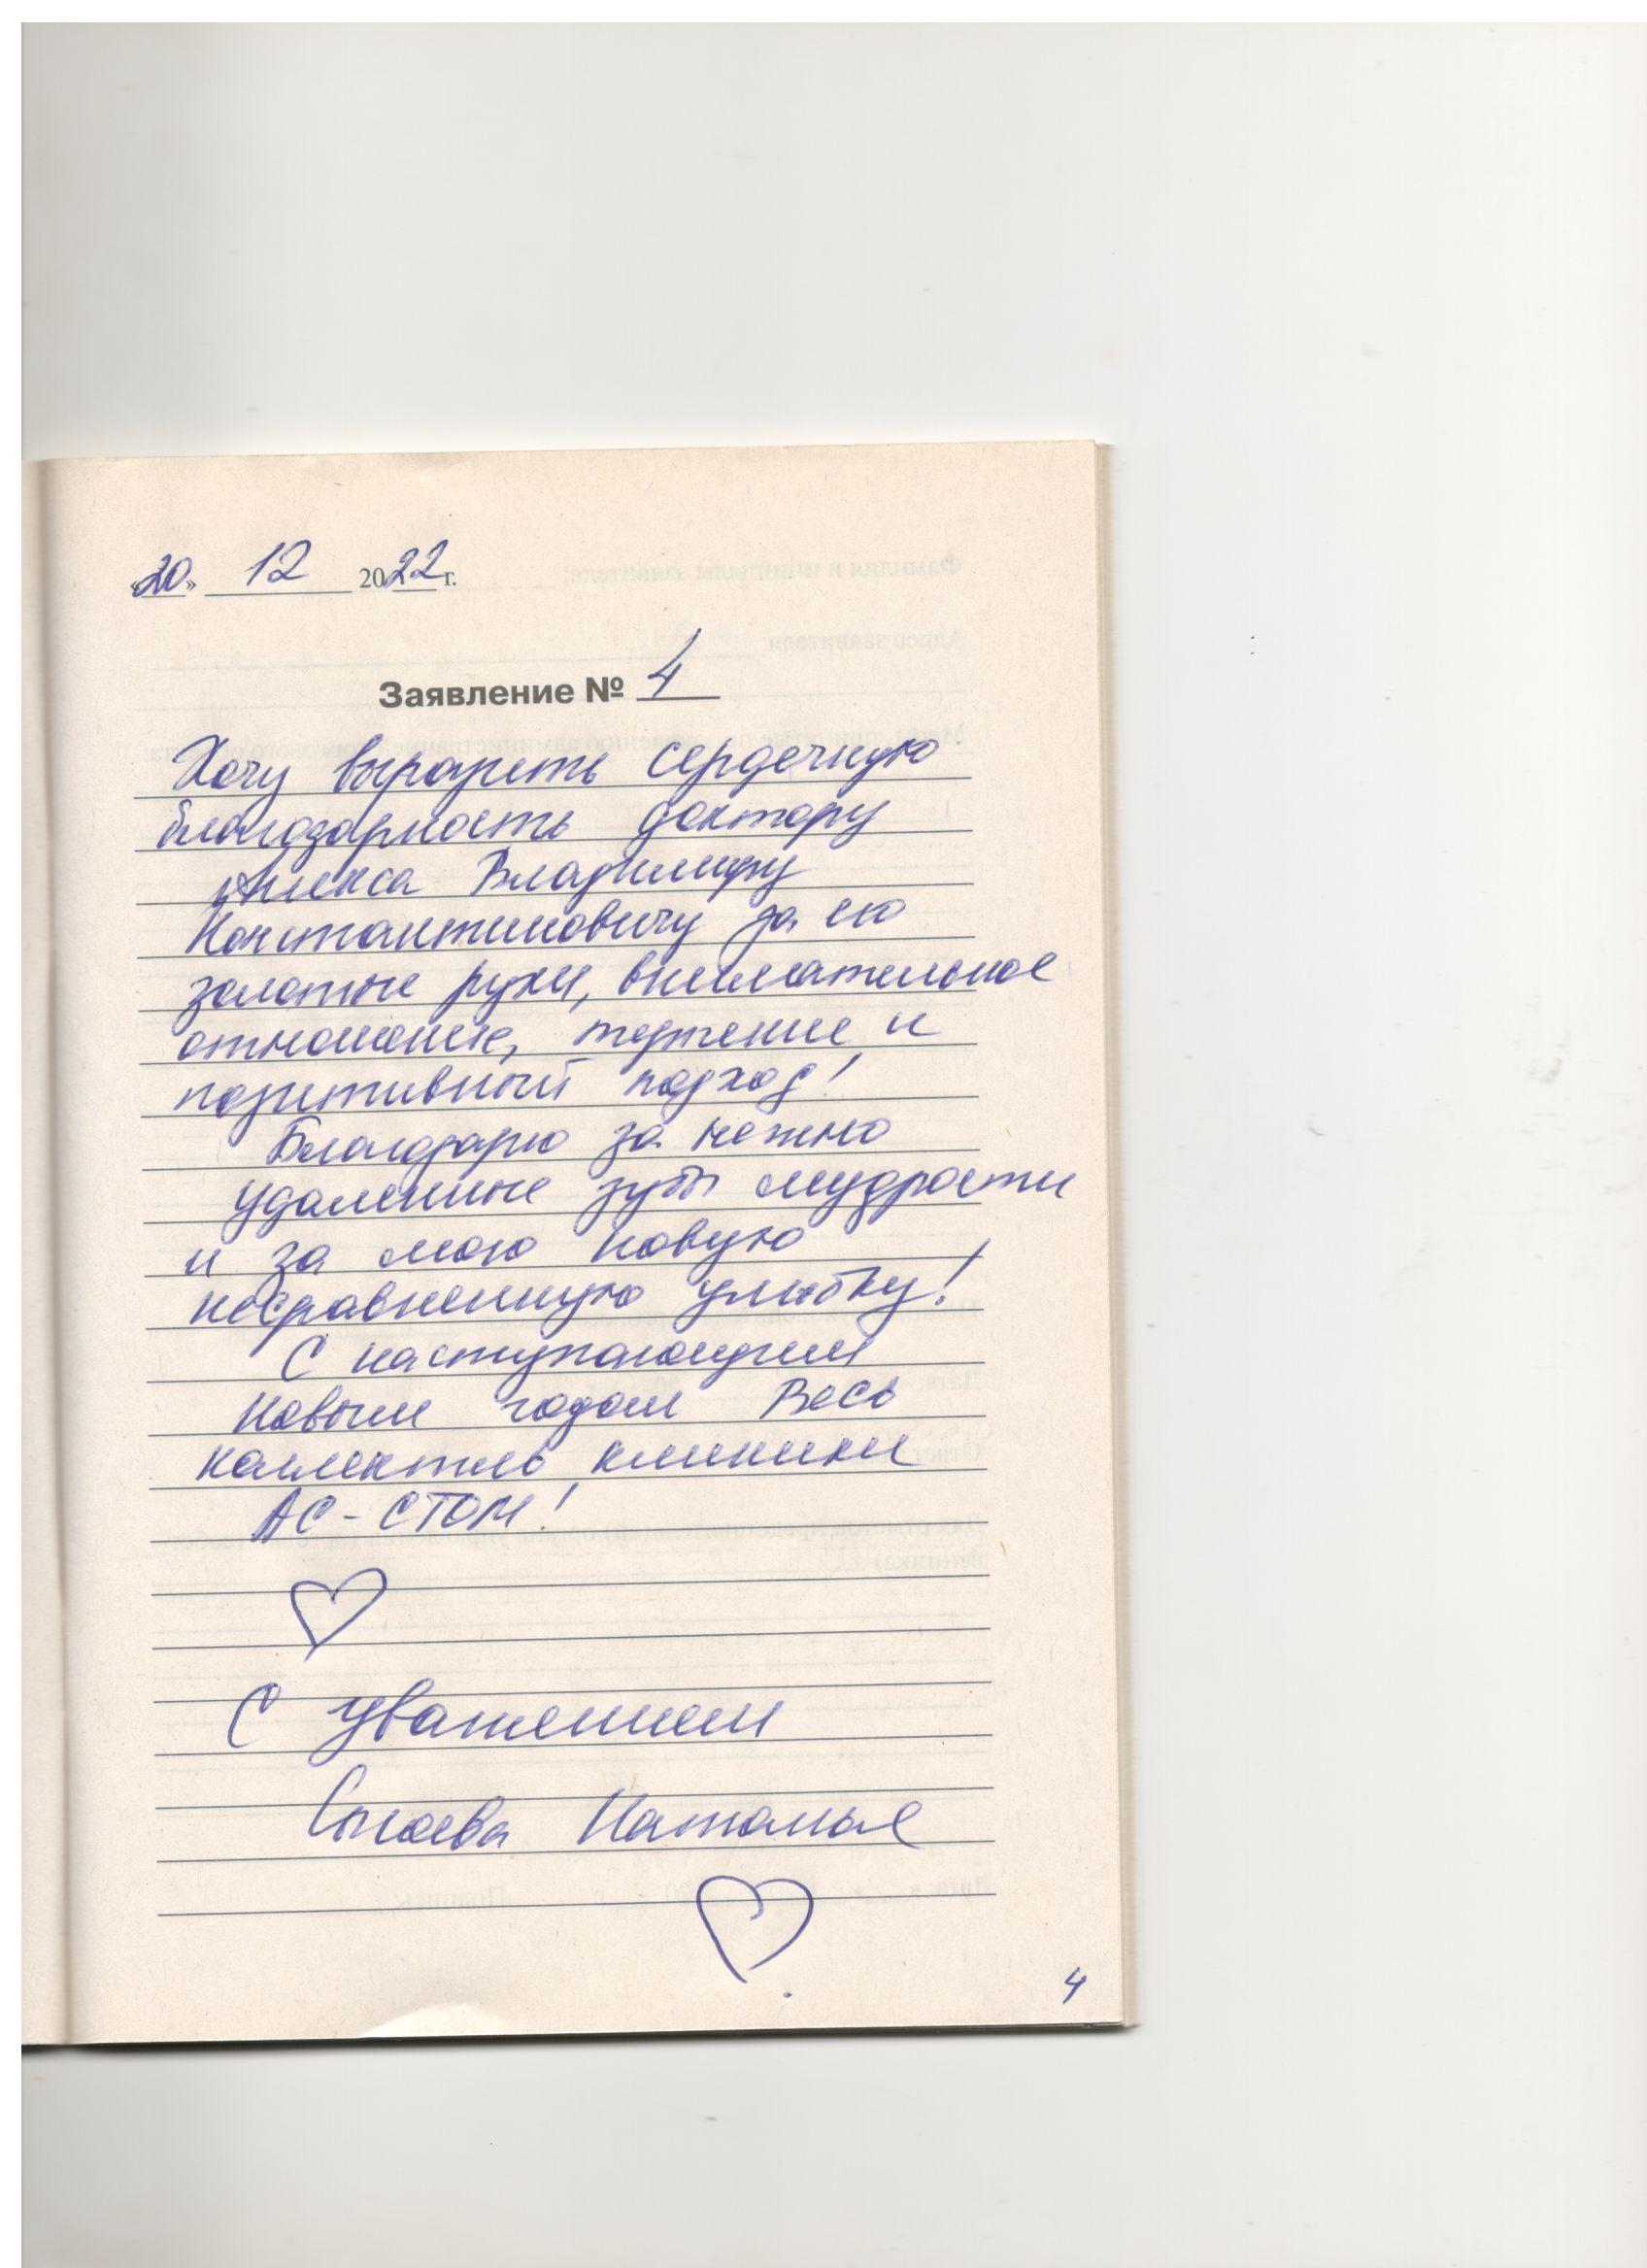 «20» 12 2022 г.
Заявление № 4
Хочу выразить сердечную
благодарность доктору
Владимиру
Константиновичу за его
золотые руки, внимательное
отношение, терпение и
позитивный подход!
Благодарю за нежно
удаленные зубы мудрости
и за мою новую
несравненную улыбку!
С наступающим
Новым годом Весь
коллектив клиники
АС-СТОМ!
С уважением
Наталья
4